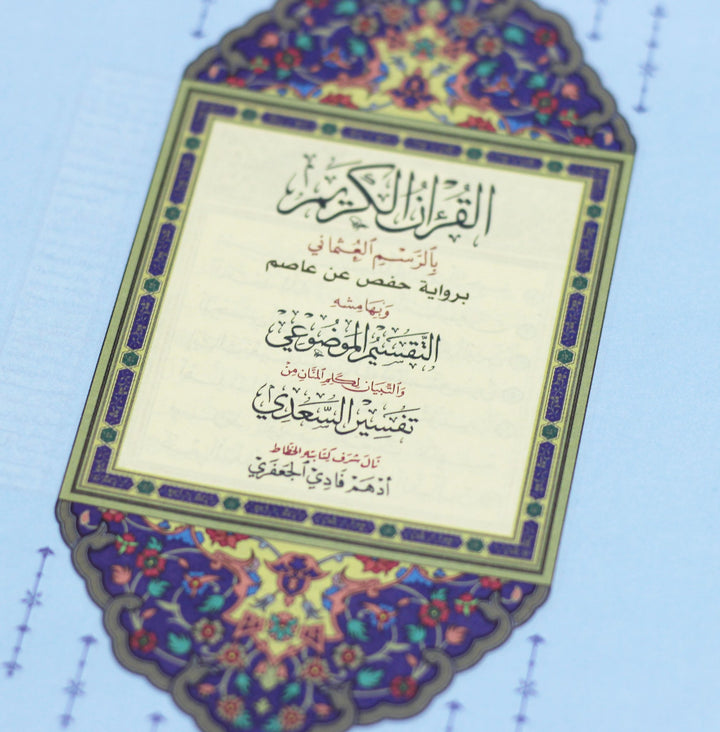 القُرْآنُ الكَرِيْمُ
بِالرَّسْمِ العُثْمَانِي
برواية حفص عن عاصم
وَبِهَامِشِهِ
التَّقْسِيْمُ المَوْضُوْعِي
وَالتِّبْيَان لِكَلِمِ المَنَّانِ مِنْ
تَفْسِيْرِ السَّعْدِي
نَالَ شَرَفَ كِتَابَتِهِ الخَطَّاط
أدْهَمْ فَادِيْ الجَعْفَرِيْ